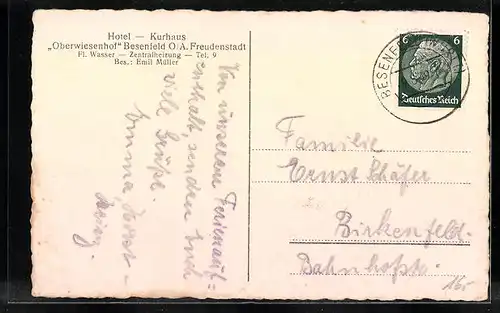 Hotel — Kurhaus
„Oberwiesenhof" Besenfeld O/A. Freudenstadt
Fl. Wasser — Zentralheitung — Tel. 9
Bes.: Emil Müller
Von unserem Ferienauf=
enthalt senden Euch
viele Grüße.
Emma
6 6
Deutsches Reich
BESENFE
Familie
Ernst Schäfer
Birkenfeld.
Bahnhofstr.
16.-